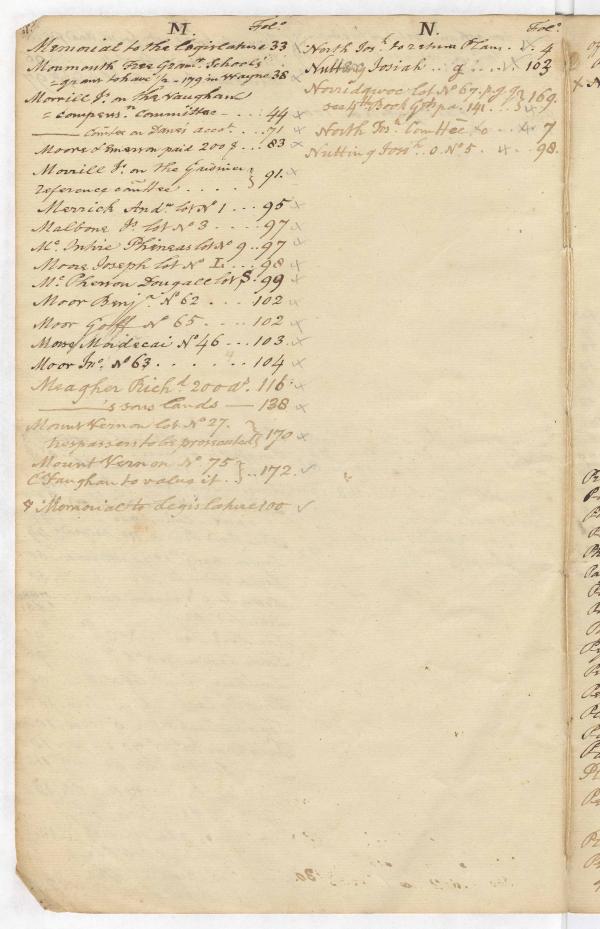 M. Folo.
Memorial to the Legislature 33 x
Monmouth Free Gramr. Schools
= grant to have /p - 179 in Wayne 38 x
Morrill Jo. on the Vaughan
= Compensn. Committee - .. 44 x
——— Comtee on Davis accot. .. 71 x
Moore & Emerson paid 200 $ .. 83 x
Morrill Jo. on the Gardiner
reference comttee . . . . } 91. x
Merrick Andw. lot No 1 ... 95 x
Malbone Jo. lot No 3 .... 97 x
Mc. Intire Phineas lot No 9 .. 97 x
Moore Joseph lot No I. ... 98 x
Mc. Pherson Dougall lot S. 99 x
Moor Benjn. No 62 ... 102 x
Moor Goff No 65 .... 102 x
Morse Mordecai No 46 ... 103. x
Moor Jno. No 63 . . . . . 104 x
Meagher Richd. 200 as. 116. x
———'s sons lands — 138 x
Mount Vernon lot No 27.
trespassers to be prosecuted } 170 x
Mount Vernon No 75
C Vaughan to value it .. } .. 172. ✓
& Memorial to Legislature 100 ✓
N. Folo.
North Josh. to return Plan .. x. 4
Nutting Josiah .. g ..... 103
Norridgwoc lot No 67. p. g. g.
see 4th Book Gdpa. 141. ... } 169. x
North Josh. Comttee &c .. x. 7
Nutting Josh. O. No 5 .. x .. 98.